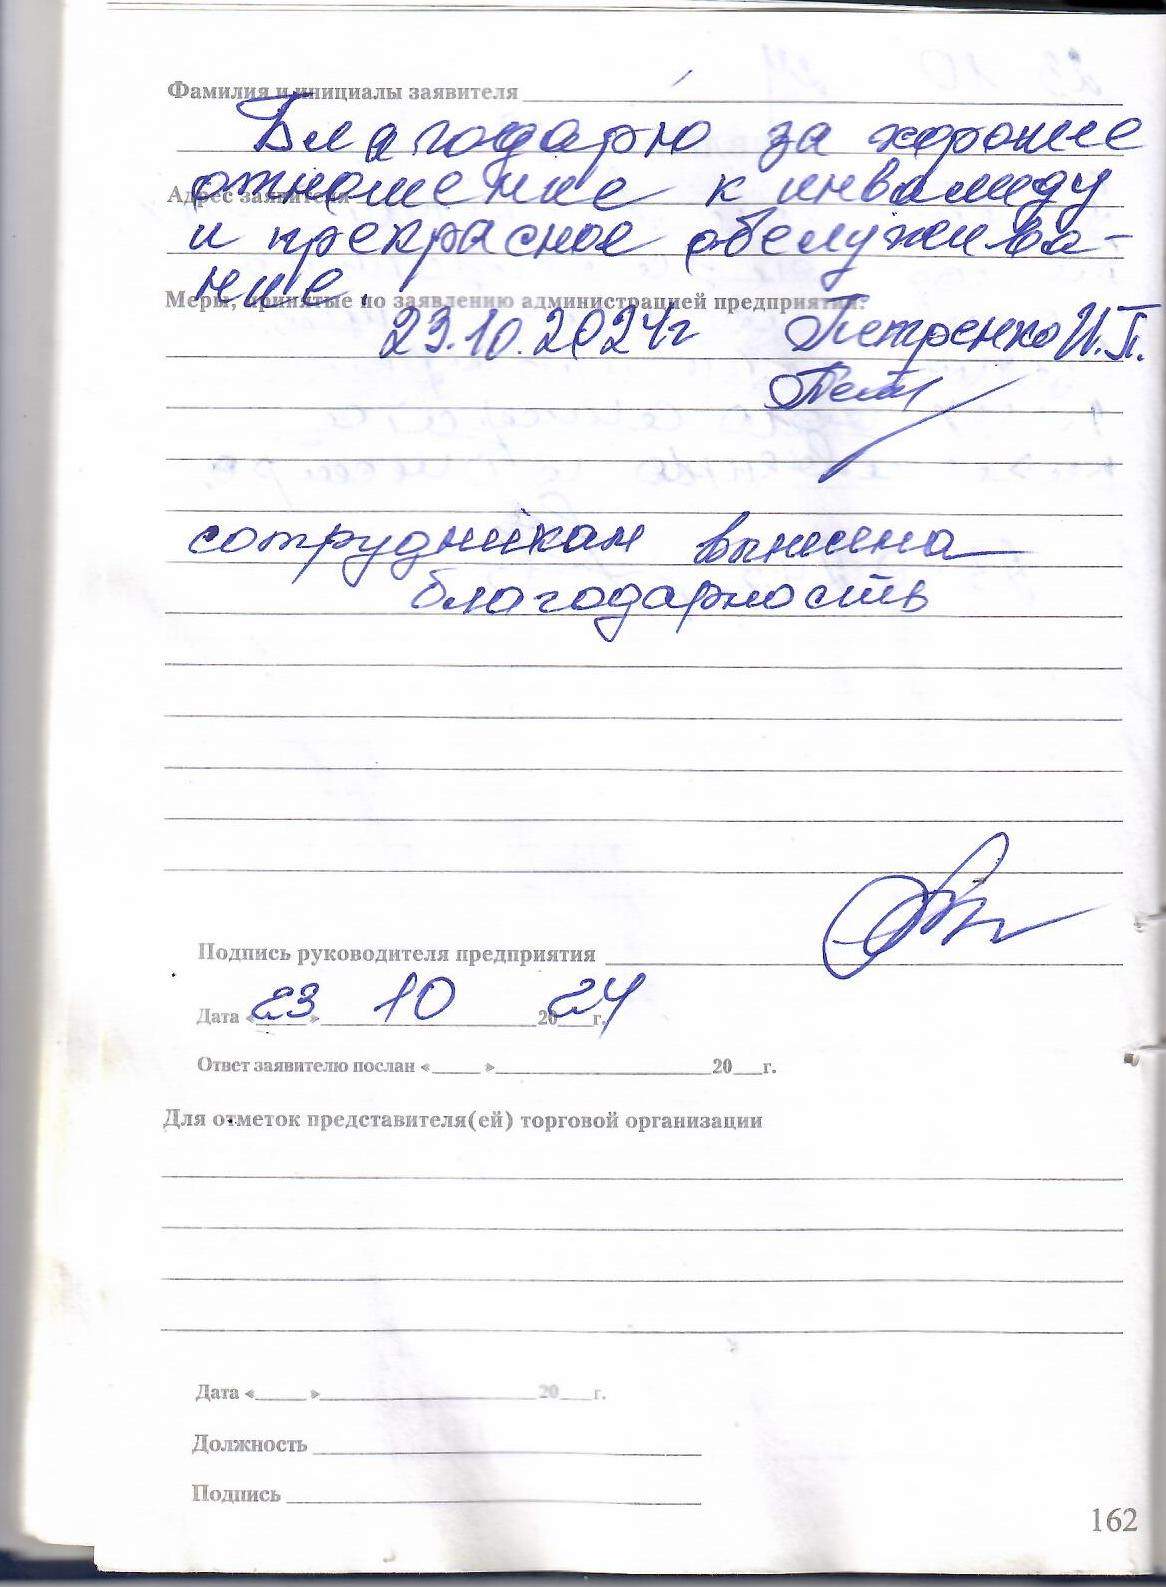 Фамилия и инициалы заявителя
Благодарю за хорошие
Адрес заявителя
отношение к инвалиду
и прекрасное обслужива-
ние.
Меры, принятые по заявлению администрацией предприятия:
23.10.2024г Петренко И.П.
сотрудникам вынесена
благодарность
Подпись руководителя предприятия
Дата «23» 10 2024 г.
Ответ заявителю послан «____» ____ 20__г.
Для отметок представителя(ей) торговой организации
Дата «____» ____ 20__г.
Должность
Подпись
162